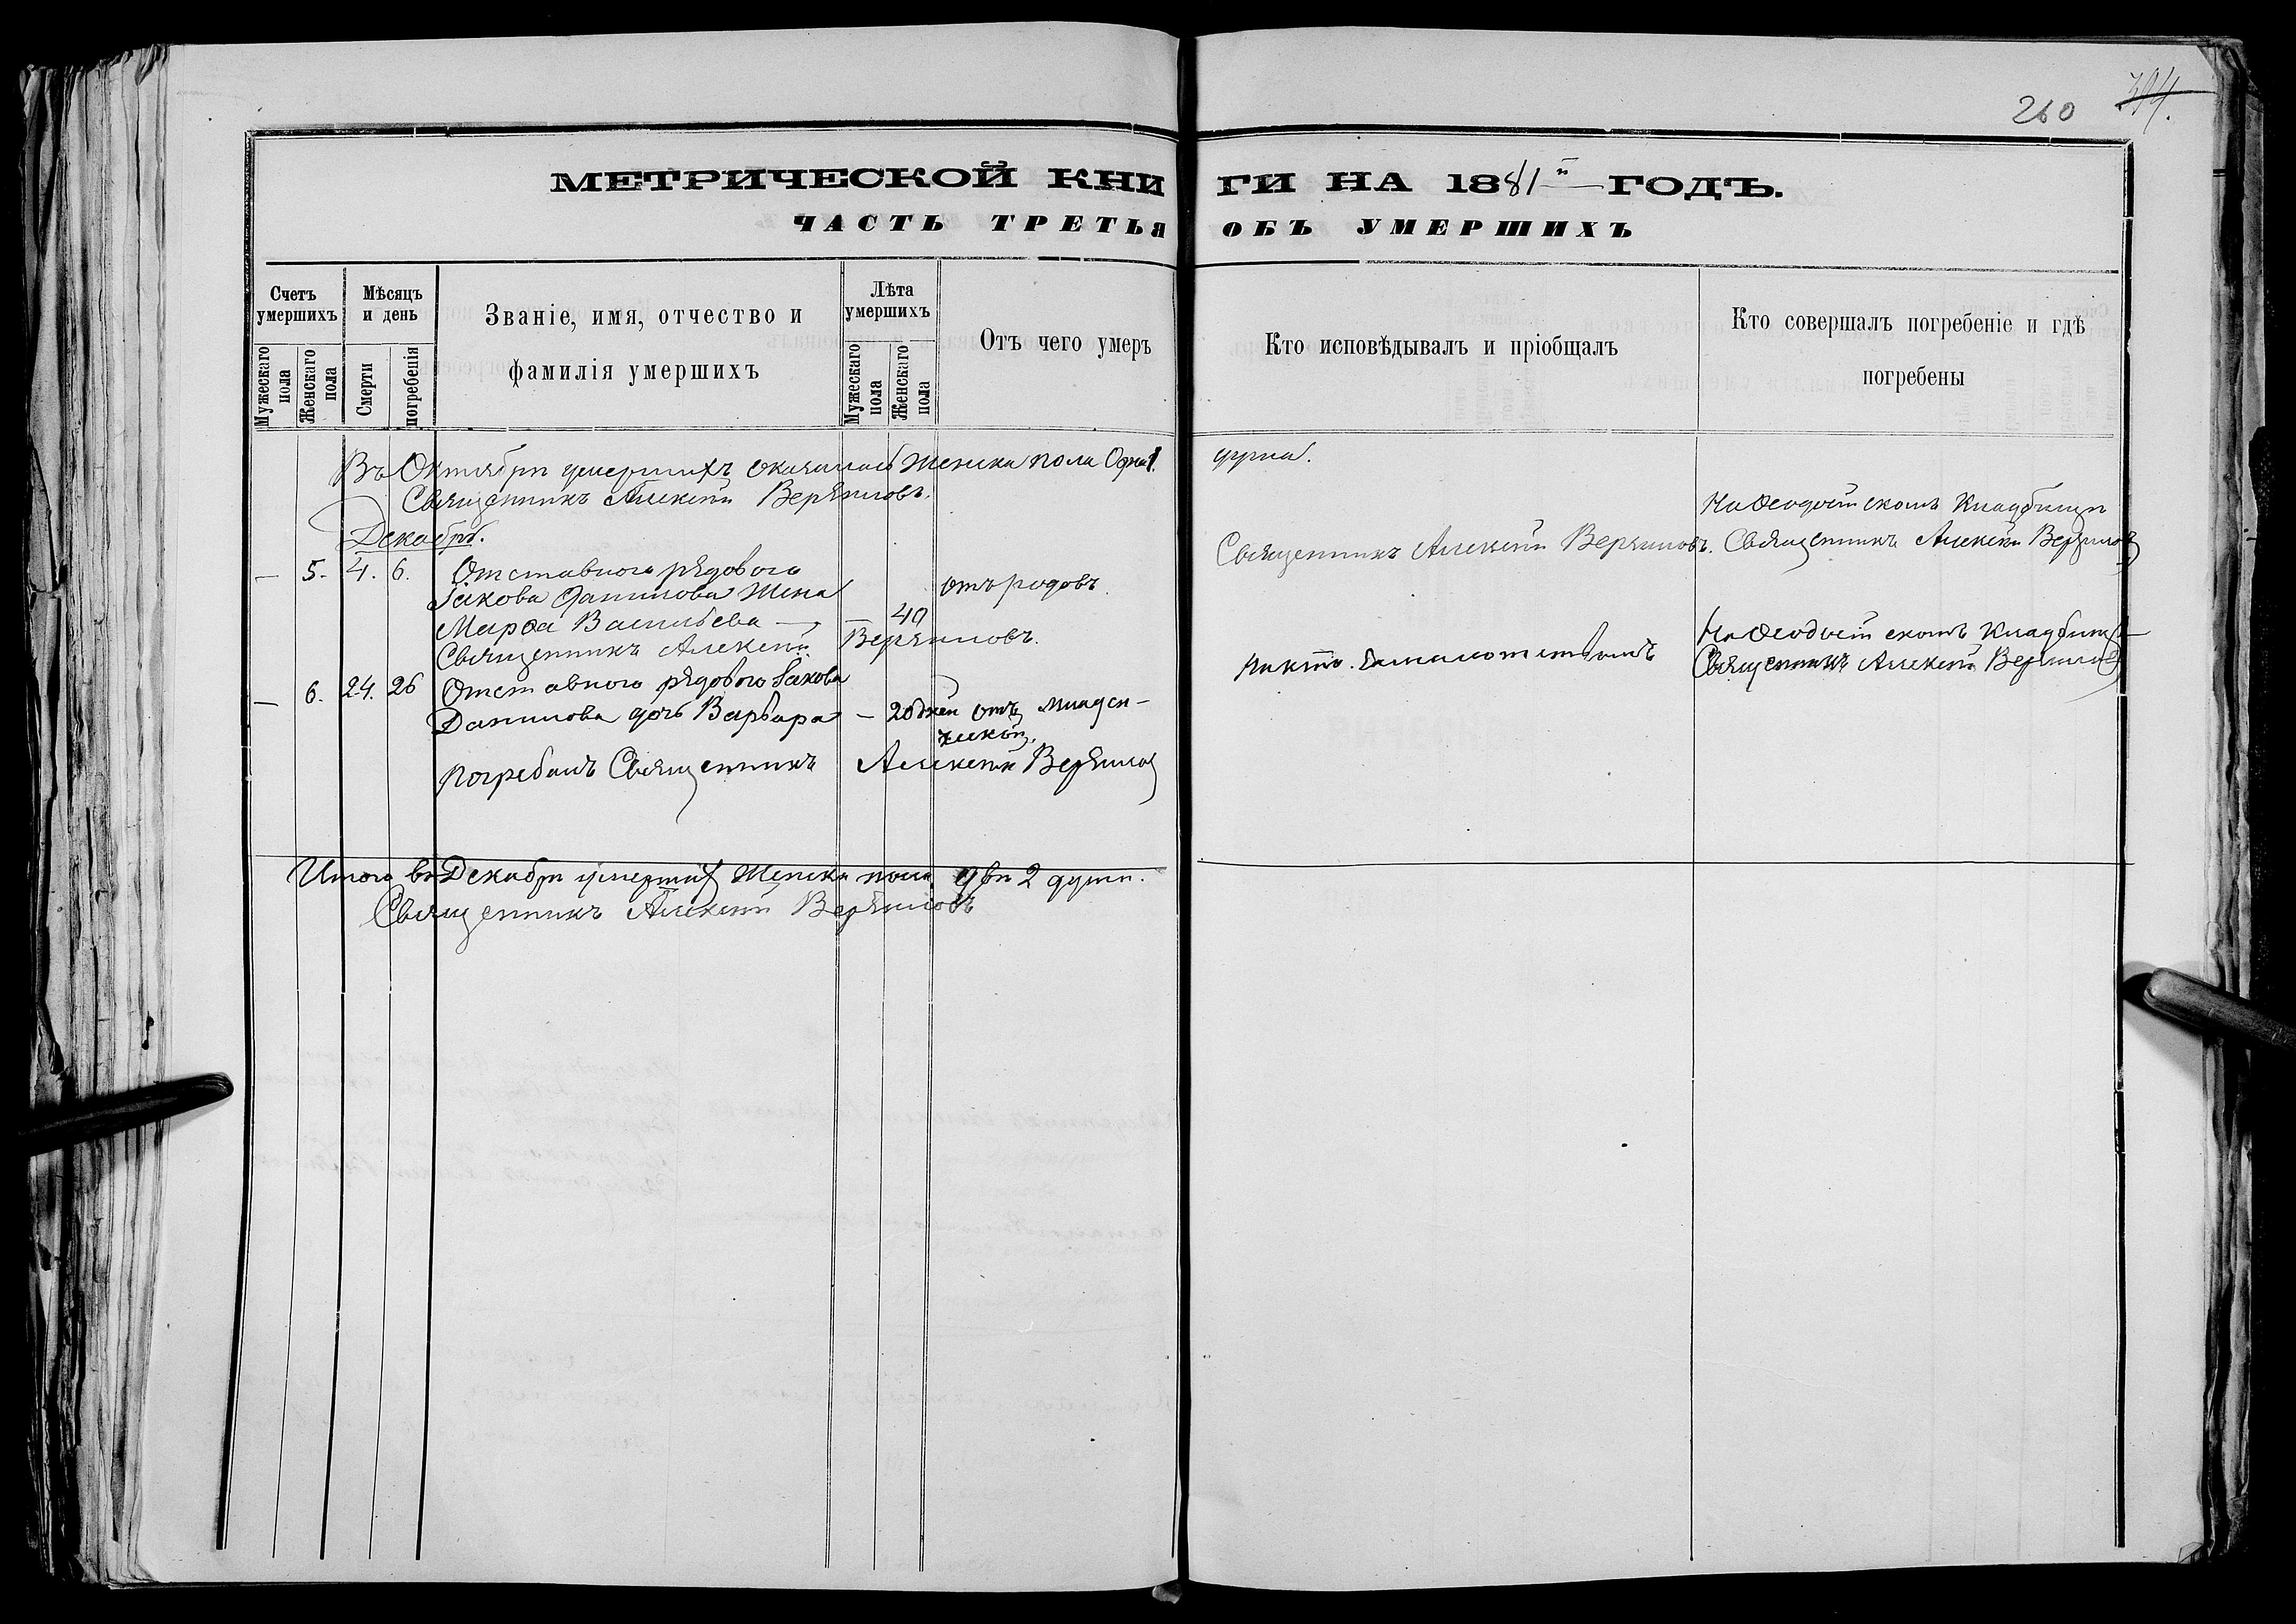 260 394.
МЕТРИЧЕСКОЙ КНИГИ НА 1881й ГОДЪ.
ЧАСТЬ ТРЕТЬЯ ОБЪ УМЕРШИХЪ
Счетъ умершихъ
Мужескаго пола
Женскаго пола
Мѣсяцъ и день
Смерти
погребенія
Званіе, имя, отчество и
фамилія умершихъ
Лѣта умершихъ
Мужескаго пола
Женскаго пола
Отъ чего умеръ
Кто исповѣдывалъ и пріобщалъ
Кто совершалъ погребеніе и гдѣ
погребены
Въ Октябрѣ умершихъ оказалась женска пола Одна 1. душа.
Священникъ Алексѣй
Декабрь.
— 5. 4. 6. Отставнаго рядоваго
Іакова Данилова жена
Марѳа Васильева — — 40
отъ родовъ.
Священникъ Алексѣй
Священникъ Алексѣй
На кладбищѣ
Священникъ Алексѣй
— 6. 24. 26 Отставнаго рядоваго Іакова
Данилова дочь Варвара — 20 дней отъ младен-
ческой.
Никто. За малолетствомъ
На кладбищѣ
Священникъ Алексѣй
погребалъ Священникъ Алексѣй
Итого въ Декабрѣ умерших женска пола двѣ 2 души.
Священникъ Алексѣй